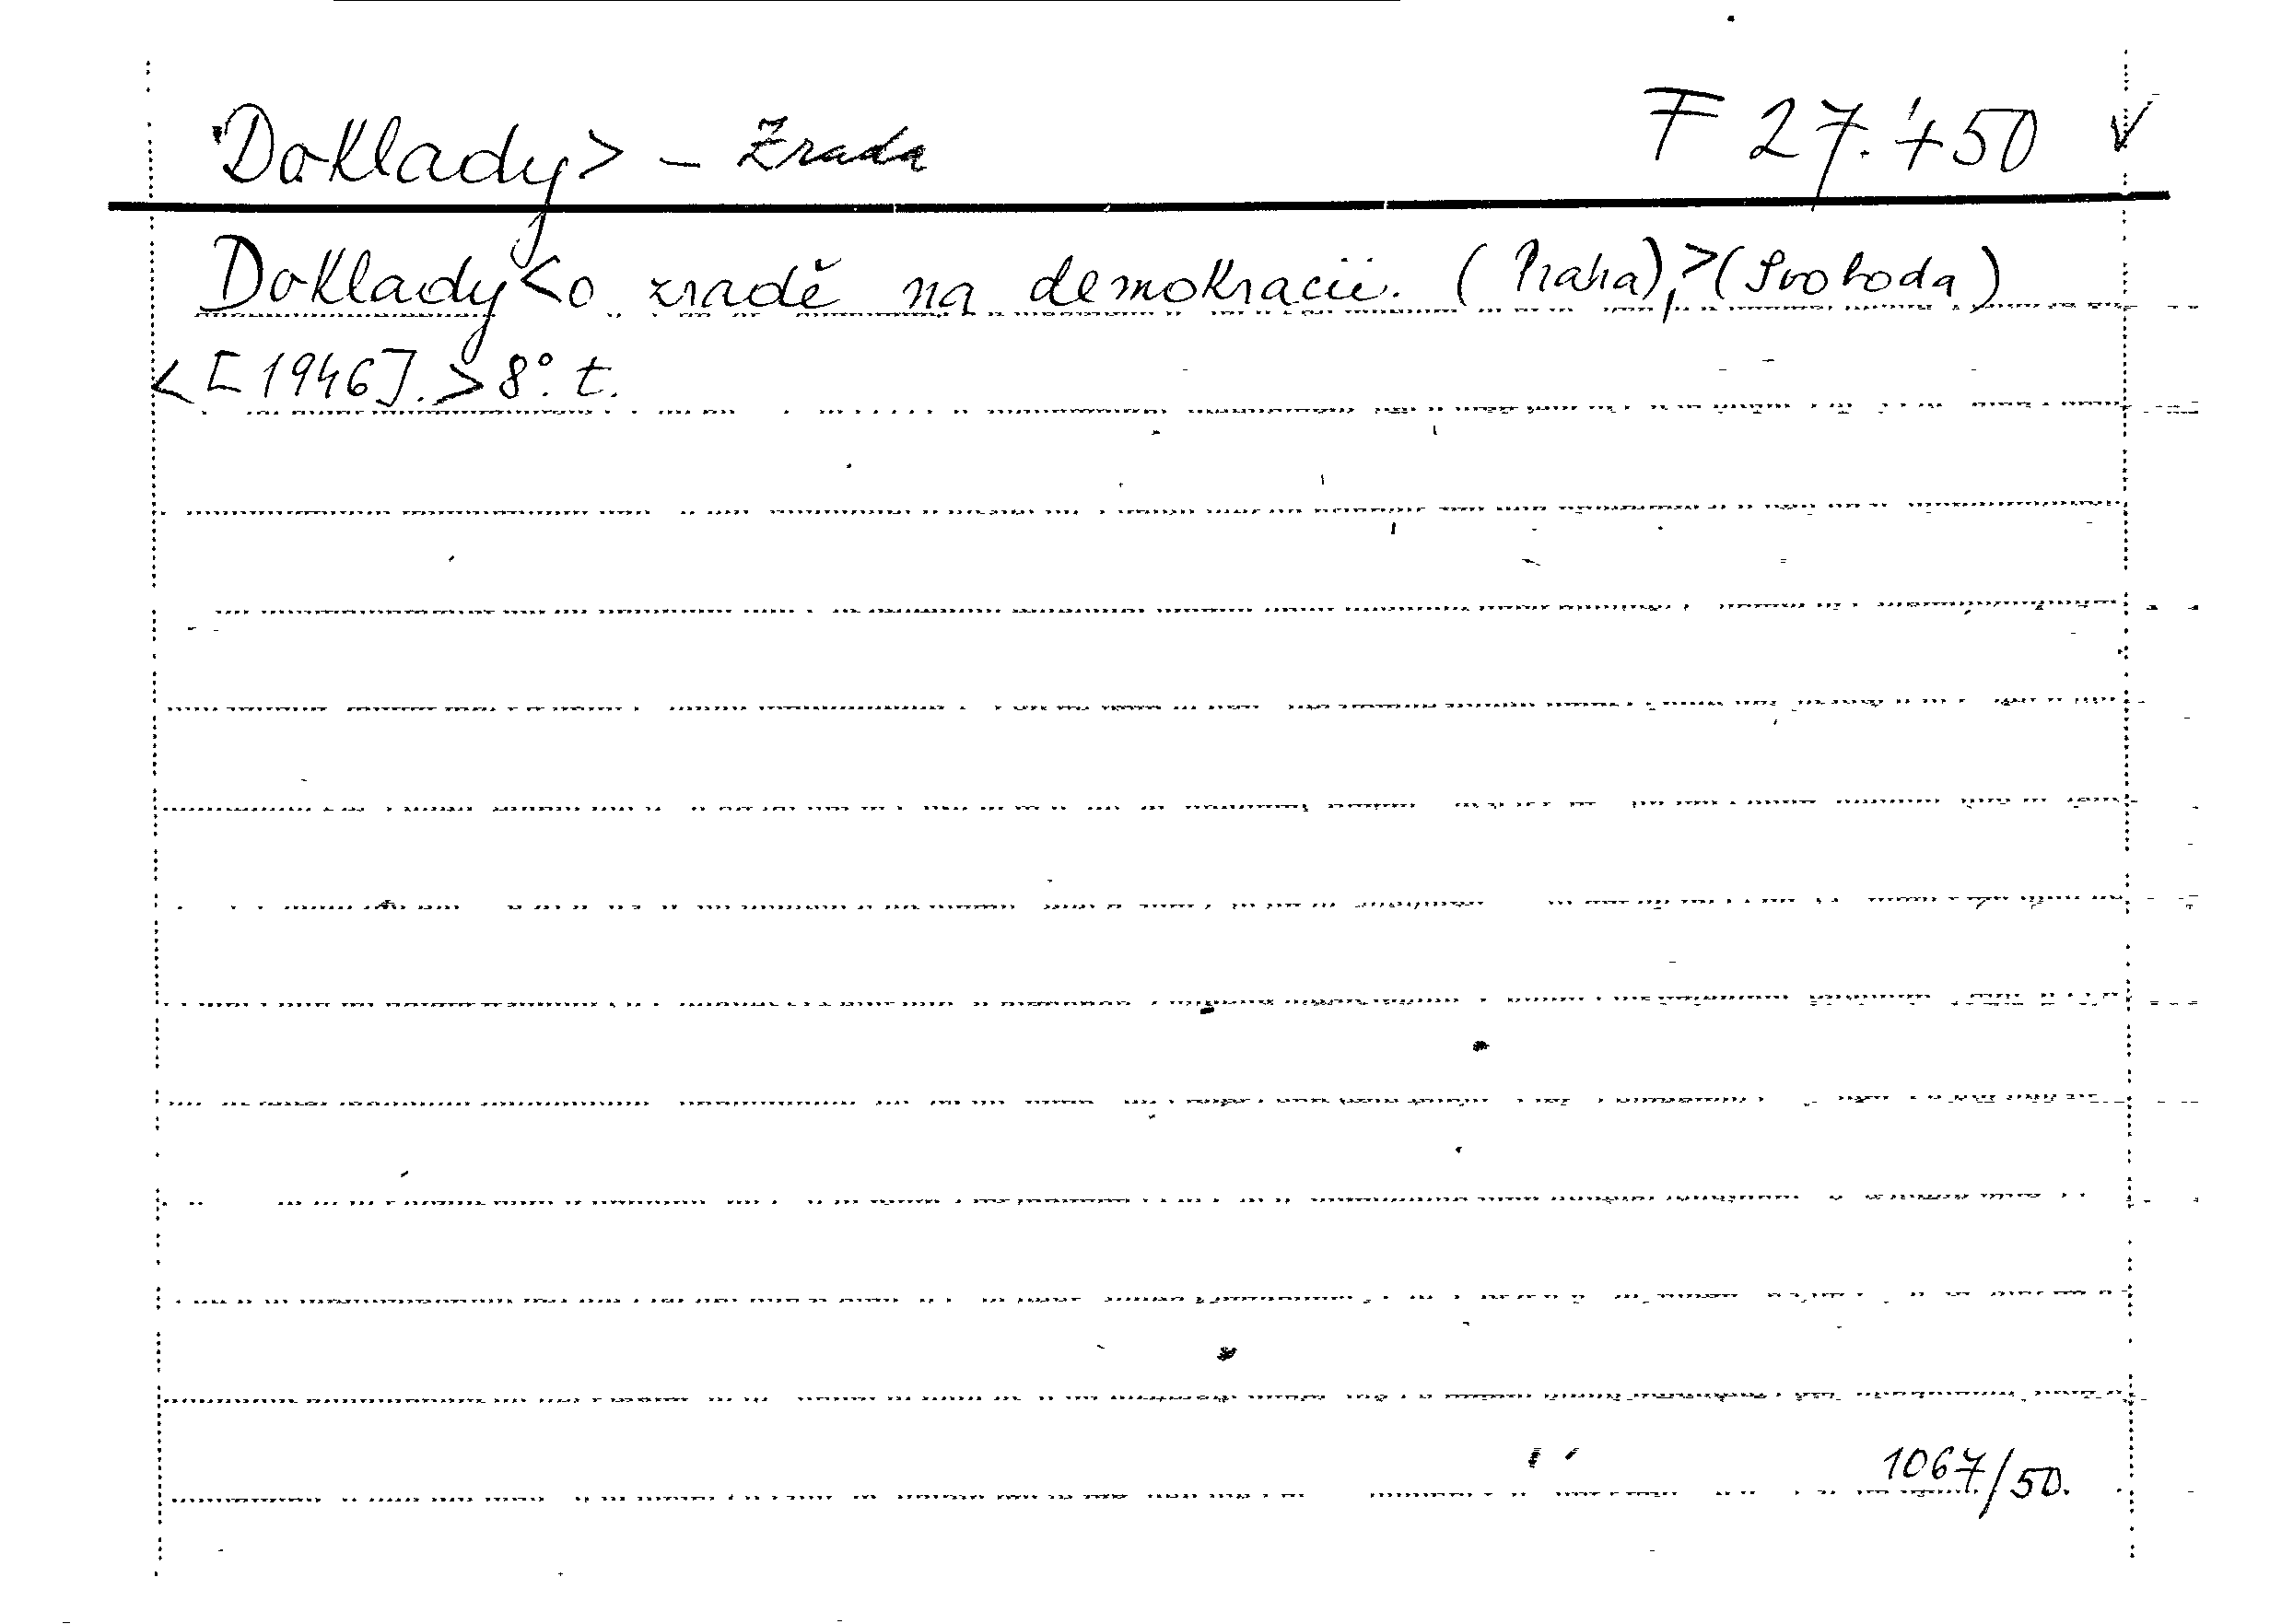 Doklady> – Zrada F 27.750 V
Doklady<o zradě na demokracii. (Praha),>(Svoboda)
<[1946].>8°. t.
1067/50.